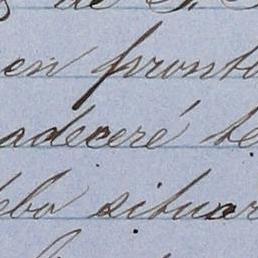 de
en pronto
adeceré te
debo situar